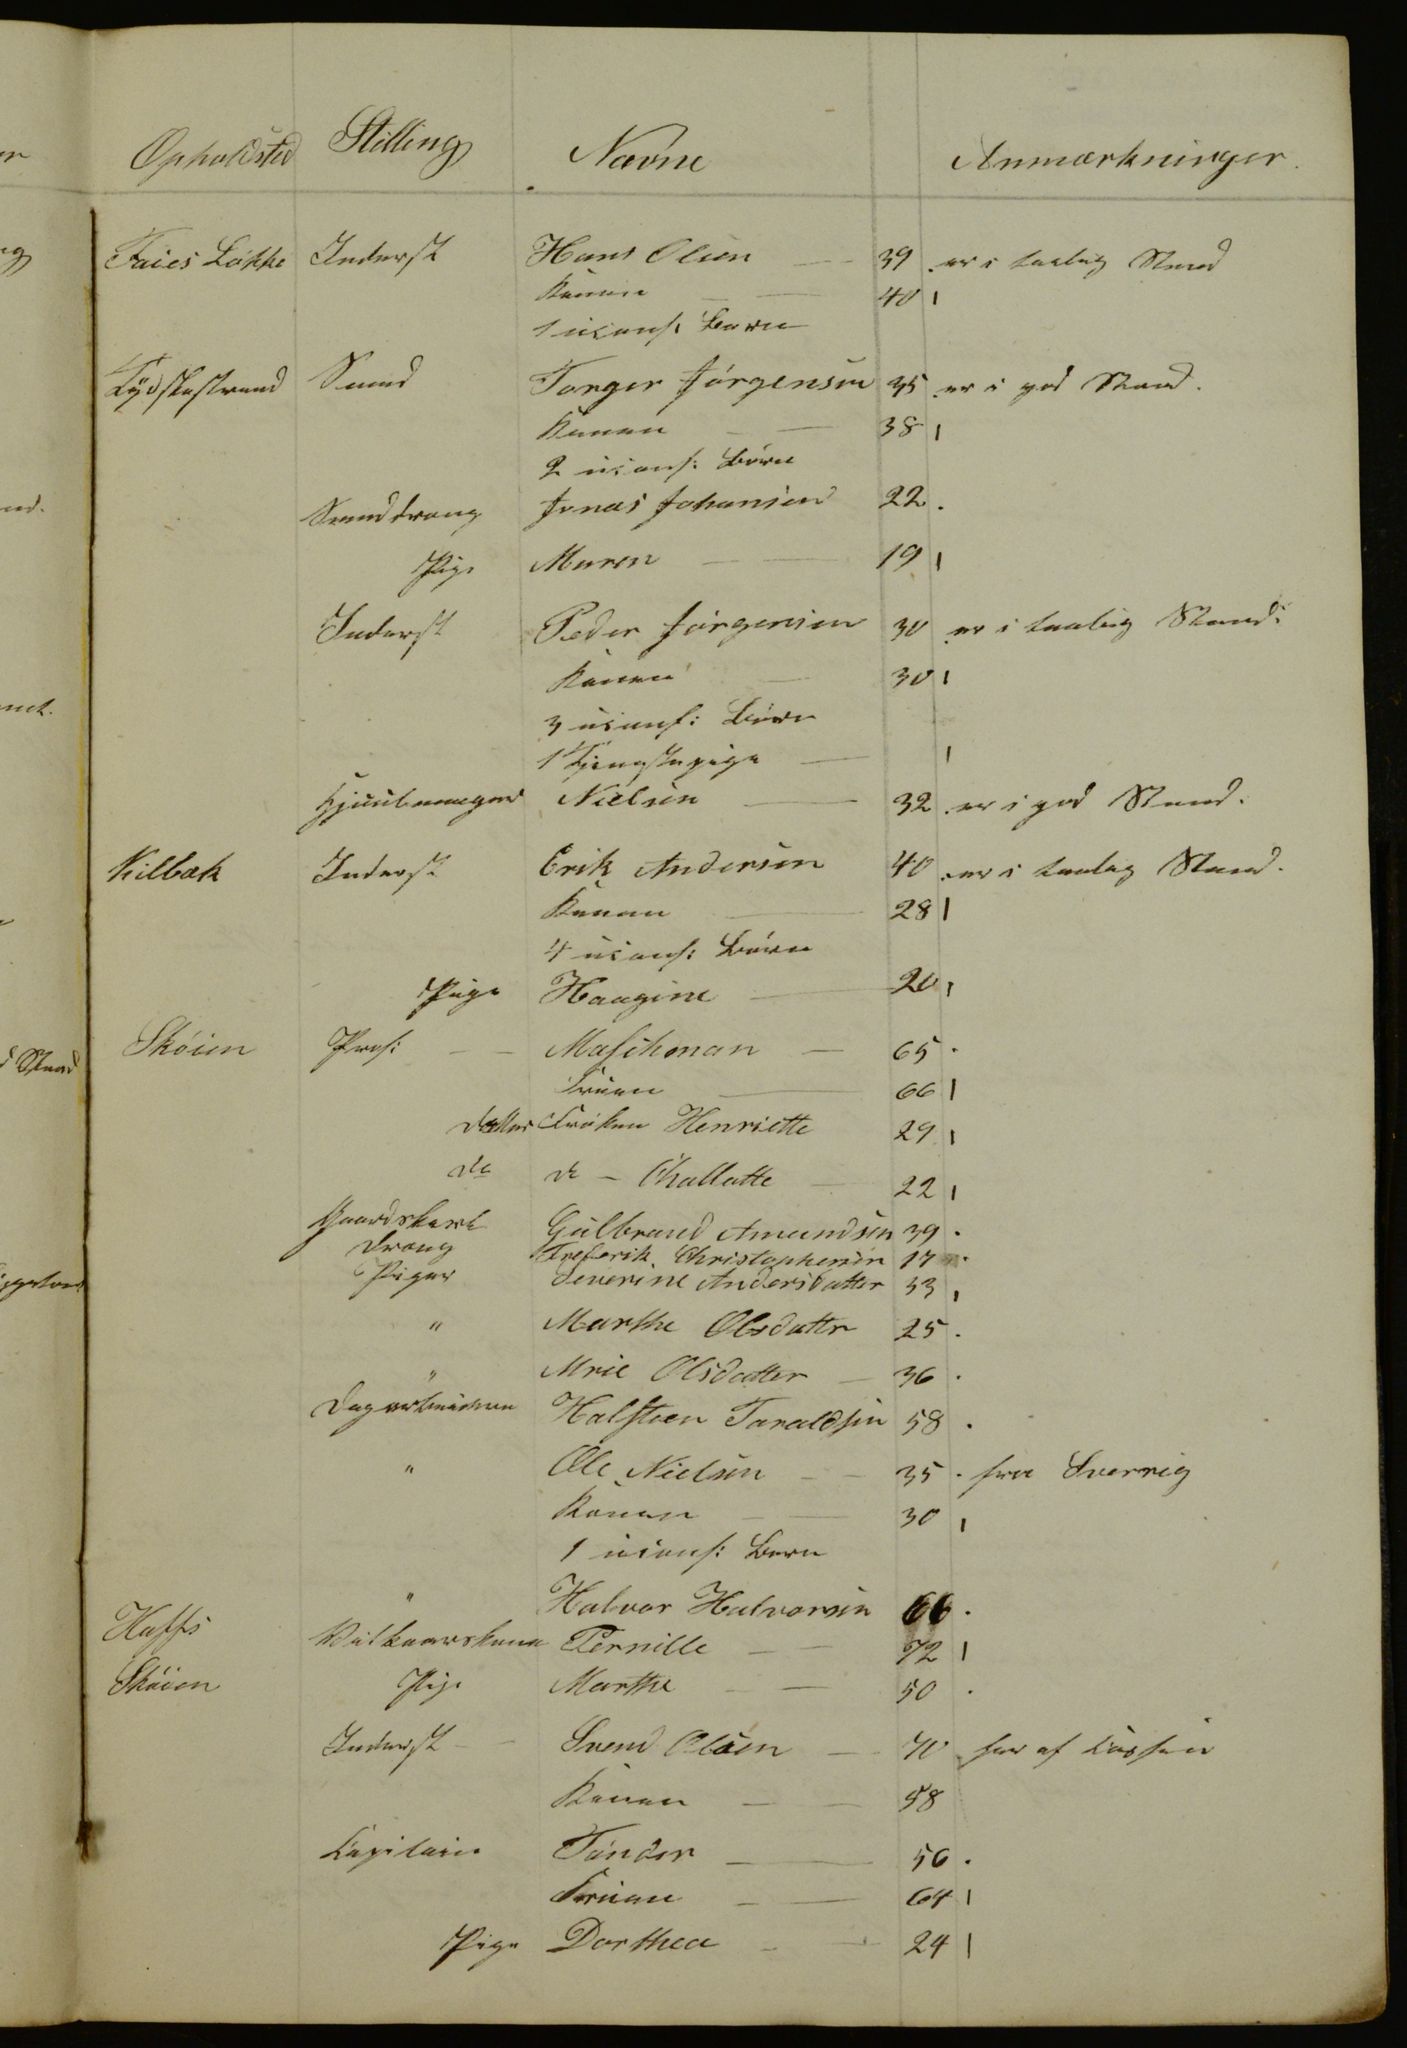 Opholdsted Stilling Navne Anmærkninger.
Faies Løkke Inderst Hans Olsen 39 er i taalig Stand
Konen 40
1 uconf: Barn
Tydskestrand Smed Torger Jörgensen 35 er i god Stand.
Konen 38
2 uconf: Börn
Smeddreng Jonas Johansen 22
Pige Maren 19
Inderst Peder Jörgensen 30 er i taalig Stand.
Konen 30
3 uconf: Börn
1 Tjenestepige
Hjuulmager Nielsen 32 er i god Stand.
Kilbak Inderst Erik Andersen 40 er i taalig Stand.
Konen 28
4 uconf: Börn
Pige Haagine 20
Skóien Prof: Maschman 65
Fruen 66
datter Fröken Henriette 29
do do - Challotte 22
Gaardskarl Gulbrand Amundsen 39
dreng Frederik Christophersen 17
Piger Severine Andersdatter 33
" Marthe Olsdatter 25
" Mrie Olsdatter 36
Dagarbeidere Halsteen Taraldsen 58
" Ole Nielsen 35 fra Sverrig
Konen 30
1 uconf: Barn
" Halvor Halvorsen 66
Hoffs Vilkaarskone Pernille 72
Skóien Pige Marthe 50
Inderst Svend Olsen 70 har af Cassen
Konen 58
Capitain Tónder 56
Fruen 64
Pige Dorthea 24